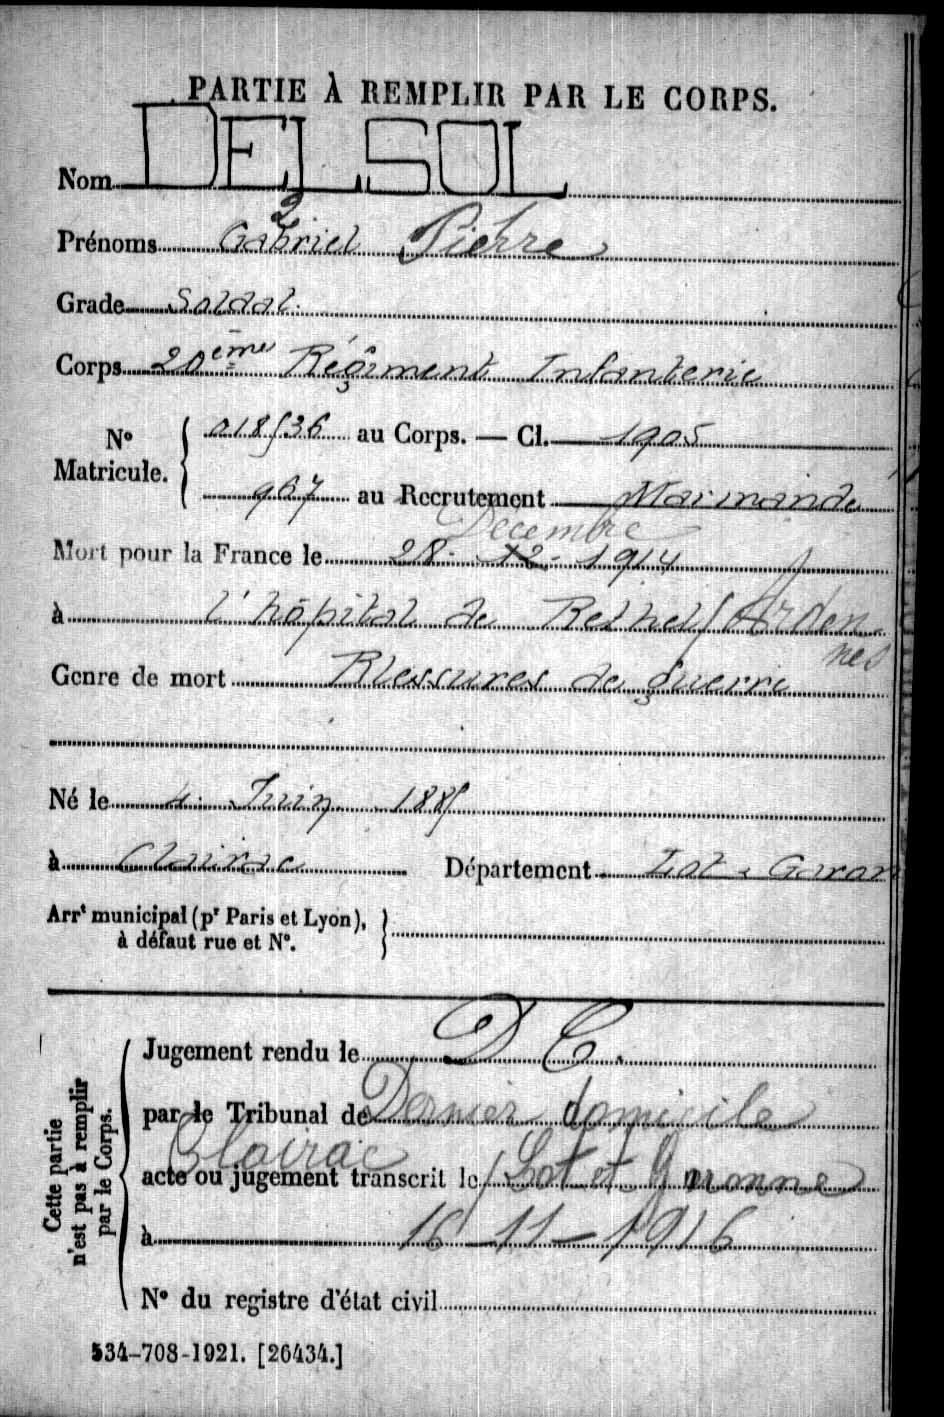 PARTIE À REMPLIR PAR LE CORPS.
Nom DELSOL
2
Prénoms Gabriel Pierre
Grade Soldat.
Corps 20ème Régiment Infanterie
No Matricule. { 018536 au Corps. — Cl. 1905
967 au Recrutement Marmande
Décembre
Mort pour la France le 28- 12- 1914
à l'hôpital de Rethel (Arden
nes
Genre de mort Blessures de guerre
Né le 4 Juin 1885
à Clairac Département Lot & Garon
Arrt municipal (pr Paris et Lyon),
à défaut rue et No.
Cette partie n'est pas à remplir par le Corps.
Jugement rendu le D C.
par le Tribunal de Dernier domicile
Clairac
acte ou jugement transcrit le (Lot et Garonne
à 16-11-1916
No du registre d'état civil
534-708-1921. [26434.]